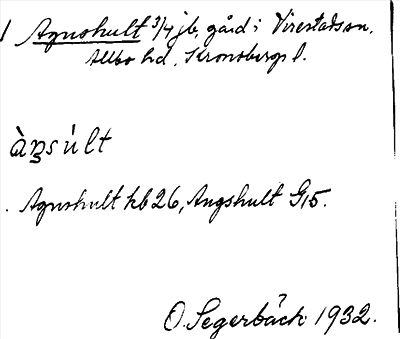 Agnshult 3/4 jb. gård i Virestads sn.
Allbo hd, Kronobergs l.
àŋsúlt
Agnshult kb 26, Angshult G15.
O. Segerbäck 1932.